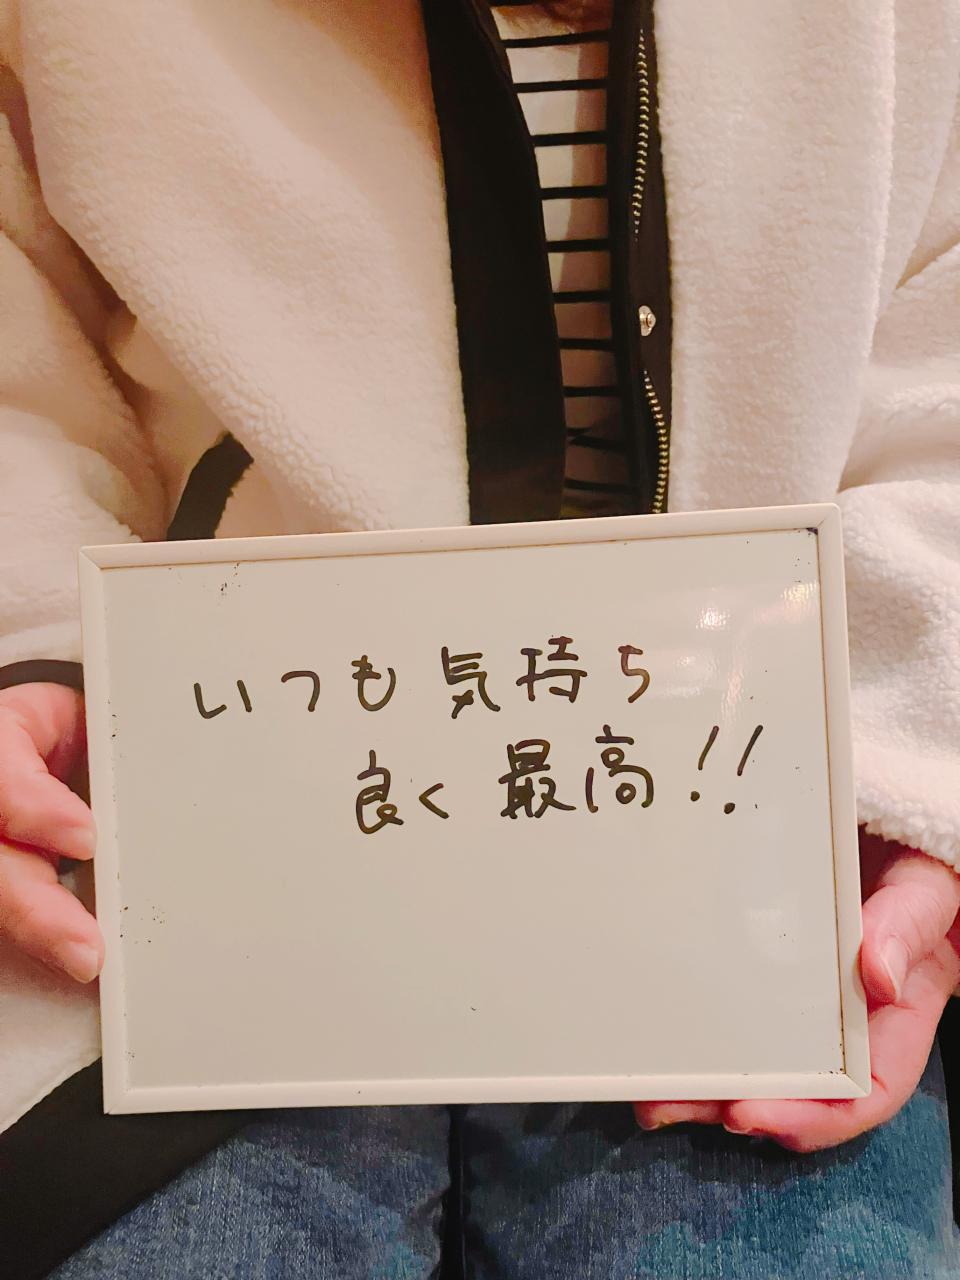 いつも気持ち
良く最高!!